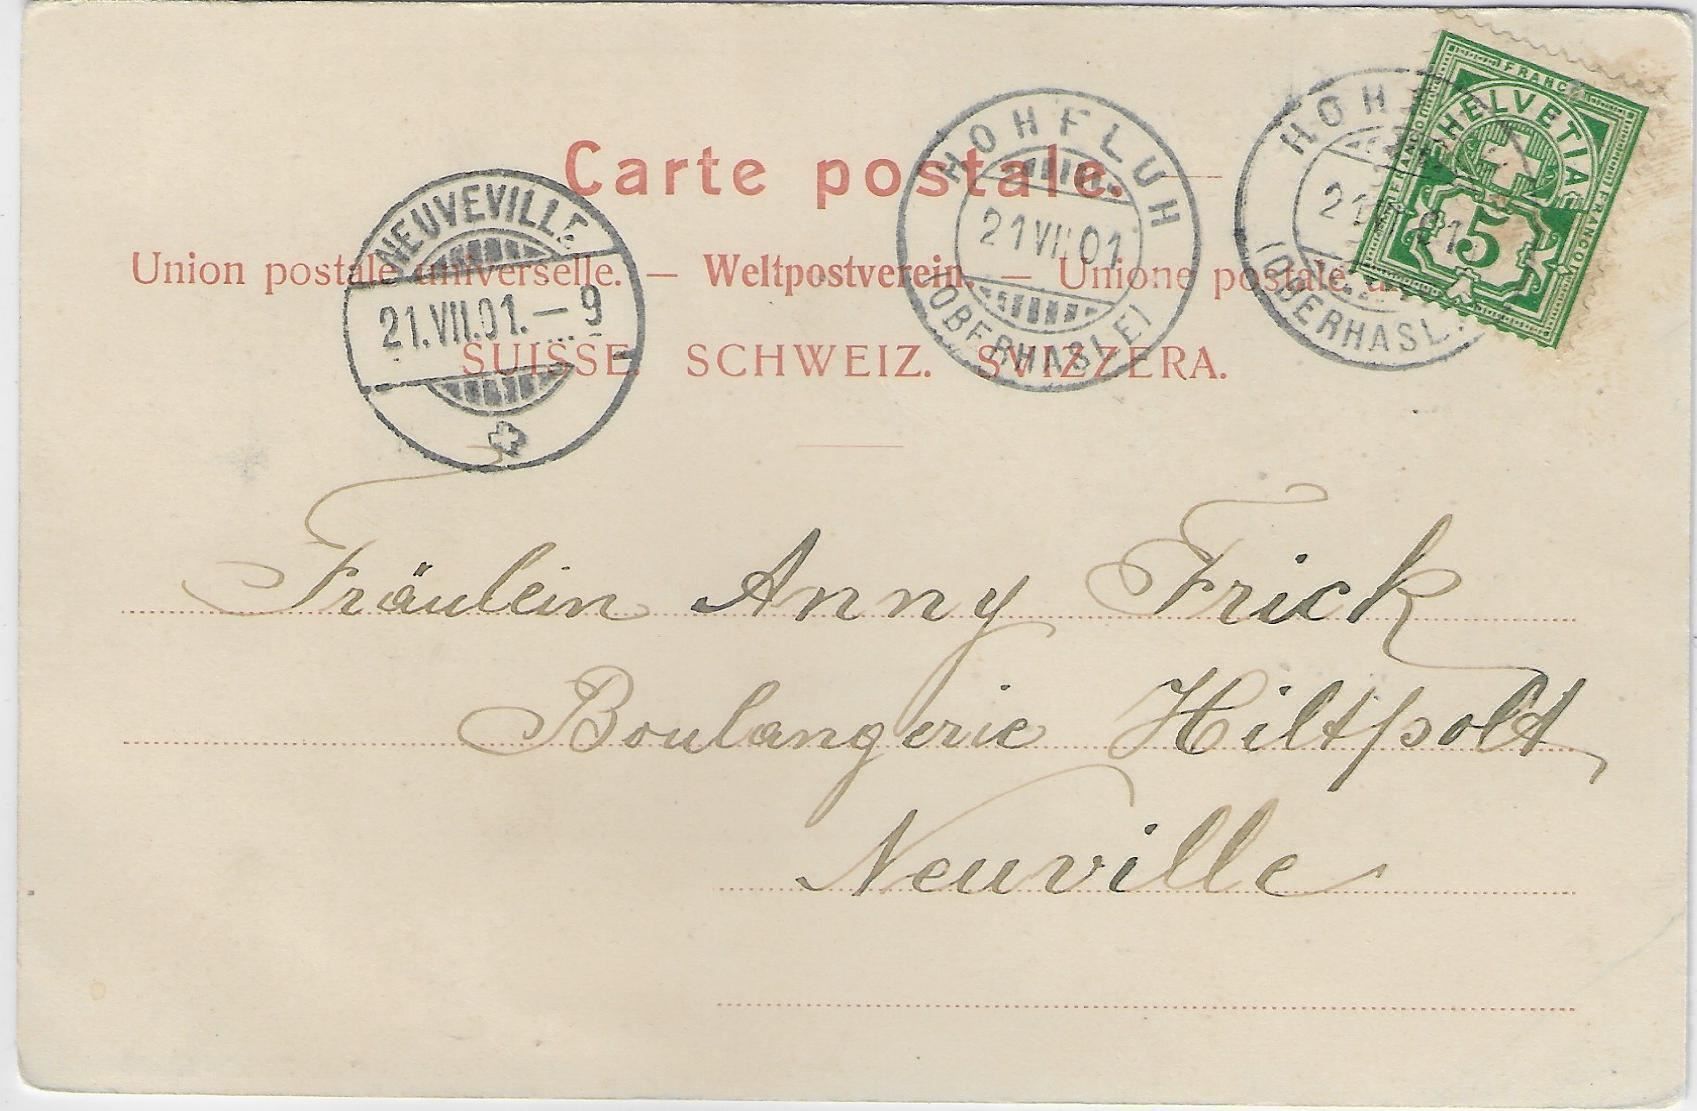 Carte postale.
Union postale universelle. — Weltpostverein. — Unione postale
SUISSE. SCHWEIZ. SVIZZERA.
NEUVEVILLE
21.VII.01.–9
HOHFLUH
21 VII 01
(OBERHASLE)
HOH
21
(OBERHASL
FRANCO
HELVETIA
5
FRANCO
Fräulein Anny Frick
Boulangerie Hiltpolt
Neuville